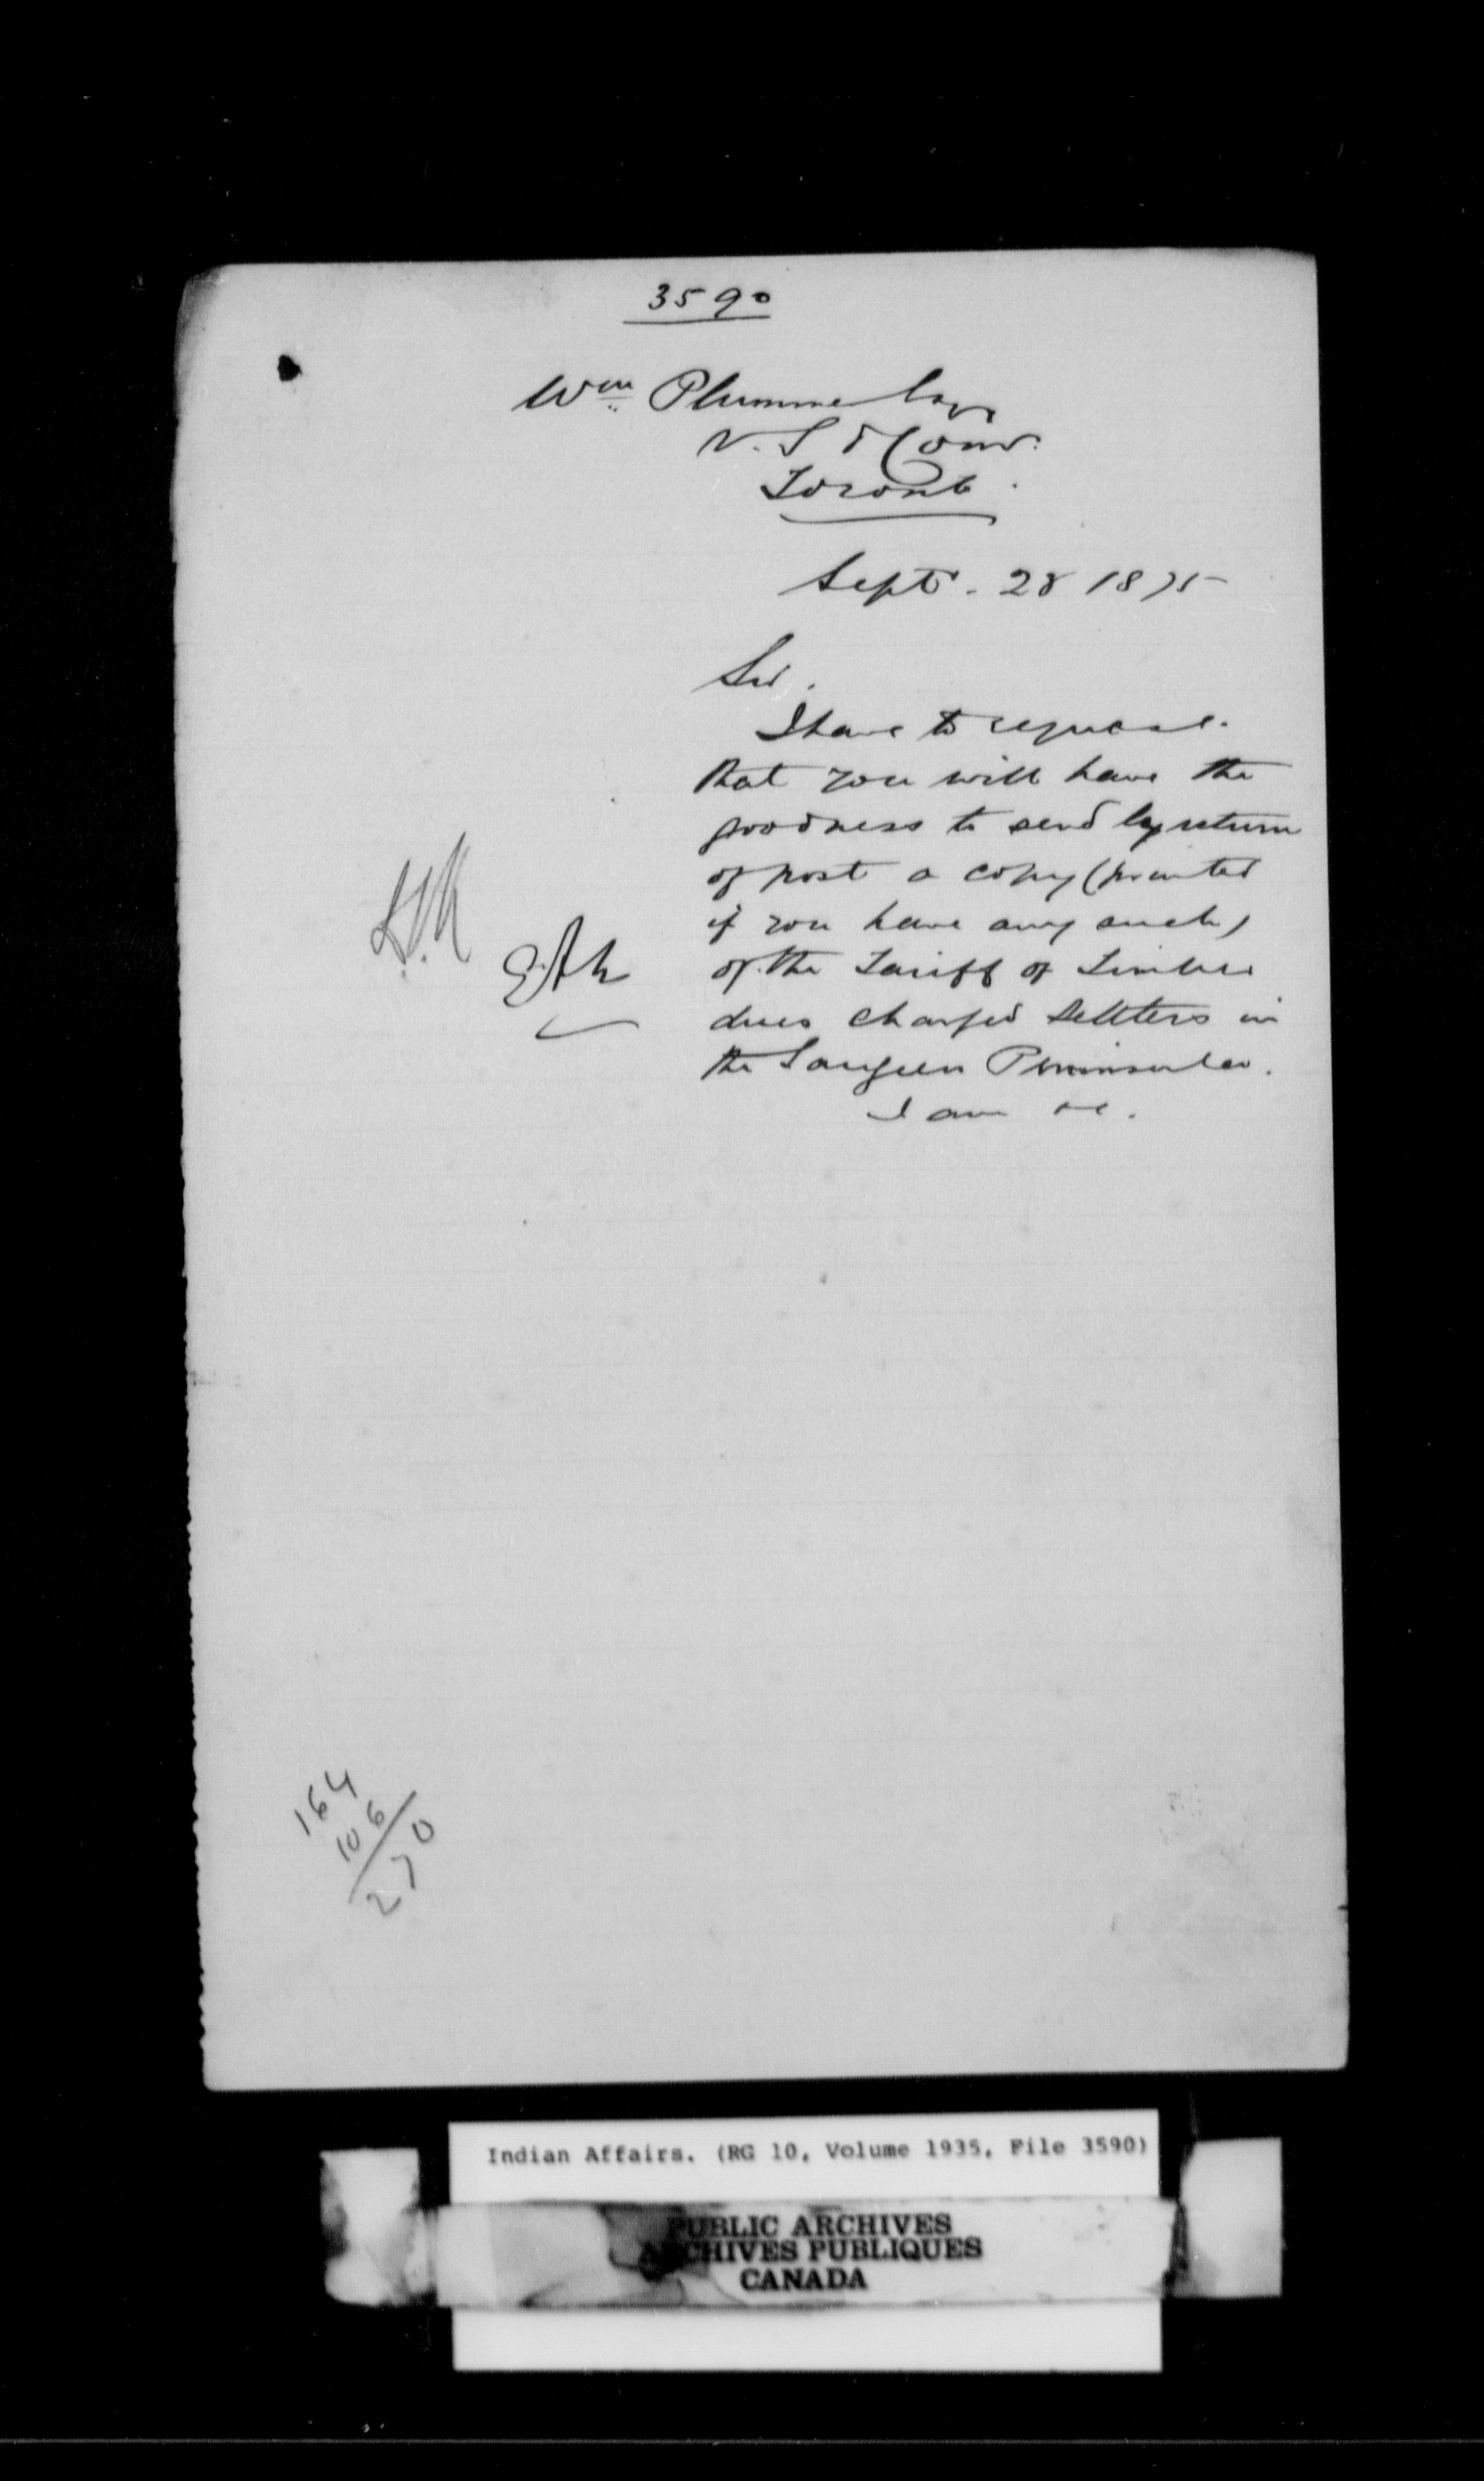 3590
Wm. Plummer Esq
V. S & Comr.
Toronto.
Sept. 28 1875
Sir.
I have to request
that you will have the
goodness to send by return
of post a copy (printed
if you have any such)
of the Tariff of Timber
dues charged Settlers in
the Saugeen Peninsula.
I am &c.
164
106
270
Indian Affairs. (RG 10, Volume 1935, File 3590)
PUBLIC ARCHIVES
ARCHIVES PUBLIQUES
CANADA